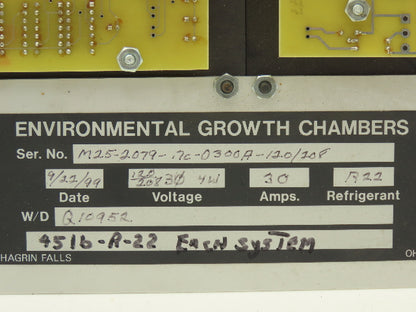 ENVIRONMENTAL GROWTH CHAMBERS
Ser. No. M25-2079-.7c-0300A-120/208
9/22/99 120/208 3Ø 4W 30 R22
Date Voltage Amps. Refrigerant
W/D Q10952
45lb-R-22 Each system
HAGRIN FALLS OH